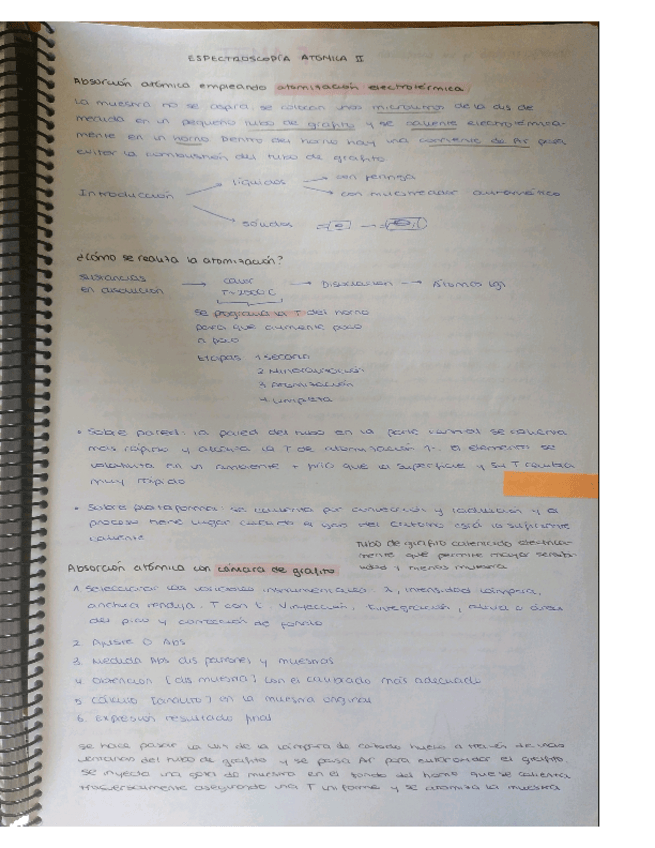 ESPECTROSCOPÍA ATÓMICA II
Absorción atómica empleando atomización electrotérmica
La muestra no se aspira, se colocan unos microlitros de la dis de
medida en un pequeño tubo de grafito y se calienta electrotérmica-
mente en un horno. Dentro del horno hay una corriente de Ar para
evitar la combustión del tubo de grafito
Introducción
líquidos
con jeringa
con muestreador automático
sólidos
¿Cómo se realiza la atomización?
sustancias
en disolución
calor
T~2500 C
Disociación
Átomos (g)
se programa la T del horno
para que aumente poco
a poco
Etapas 1 Secado
2 Mineralización
3 Atomización
4 Limpieza
• Sobre pared: la pared del tubo en la parte se calienta
más rápido y alcanza la T de atomización 1º. El elemento se
volatiliza en un ambiente + frío que la superficie y su T cambia
muy rápido
• Sobre plataforma: se calienta por convección y radiación y el
proceso tiene lugar cuando el gas del entorno está lo suficiente
caliente
tubo de grafito calentado eléctrica-
mente que permite mayor sensibi-
lidad y menos muestra
Absorción atómica con cámara de grafito
1. Seleccionar las variables instrumentales: λ, intensidad lámpara,
anchura rendija, T con t, V inyección, t integración, altura o área
del pico y corrección de fondo
2. Ajuste 0 Abs
3. Medida Abs dis patrones y muestras
4. Obtención [dis muestra] con el calibrado más adecuado
5. Cálculo [analito] en la muestra original
6. Expresión resultado final
Se hace pasar la luz de la lámpara de cátodo hueco a través de unas
ventanas del tubo de grafito y se pasa Ar para el grafito.
Se inyecta una gota de muestra en el fondo del horno que se calienta
transversalmente asegurando una T uniforme y se atomiza la muestra